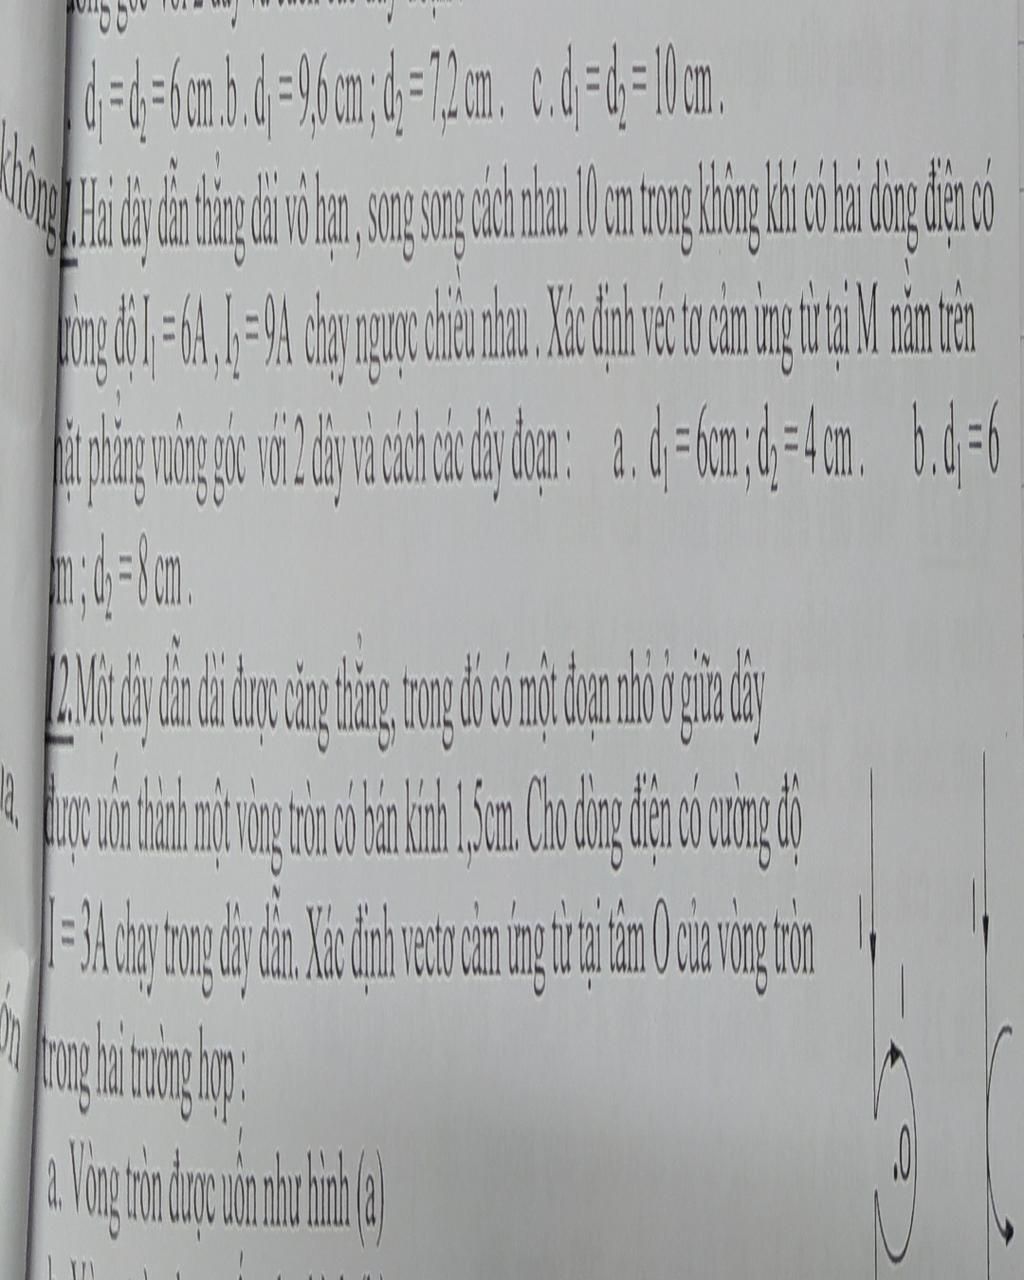 d₁ = d₂ = 6 cm . b . d₁ = 9,6 cm ; d₂ = 7,2 cm . c . d₁ = d₂ = 10 cm .
không
1. Hai dây dẫn thẳng dài vô hạn , song song cách nhau 10 cm trong không khí có hai dòng điện có
ường độ I₁ = 6A , I₂ = 9A chạy ngược chiều nhau . Xác định véc tơ cảm ừng từ tại M nằm trên
mặt phẳng vuông góc với 2 dây và cách các dây đoạn : a . d₁ = 6cm ; d₂ = 4 cm . b . d₁ = 6
cm ; d₂ = 8 cm .
12. Một dây dẫn dài được căng thẳng, trong đó có một đoạn nhỏ ở giữa dây
được uốn thành một vòng tròn có bán kính 1,5cm. Cho dòng điện có cường độ
I = 3A chạy trong dây dẫn. Xác định vectơ cảm ứng từ tại tâm O của vòng tròn
trong hai trường hợp :
a. Vòng tròn được uốn như hình (a)
I
I
I
O